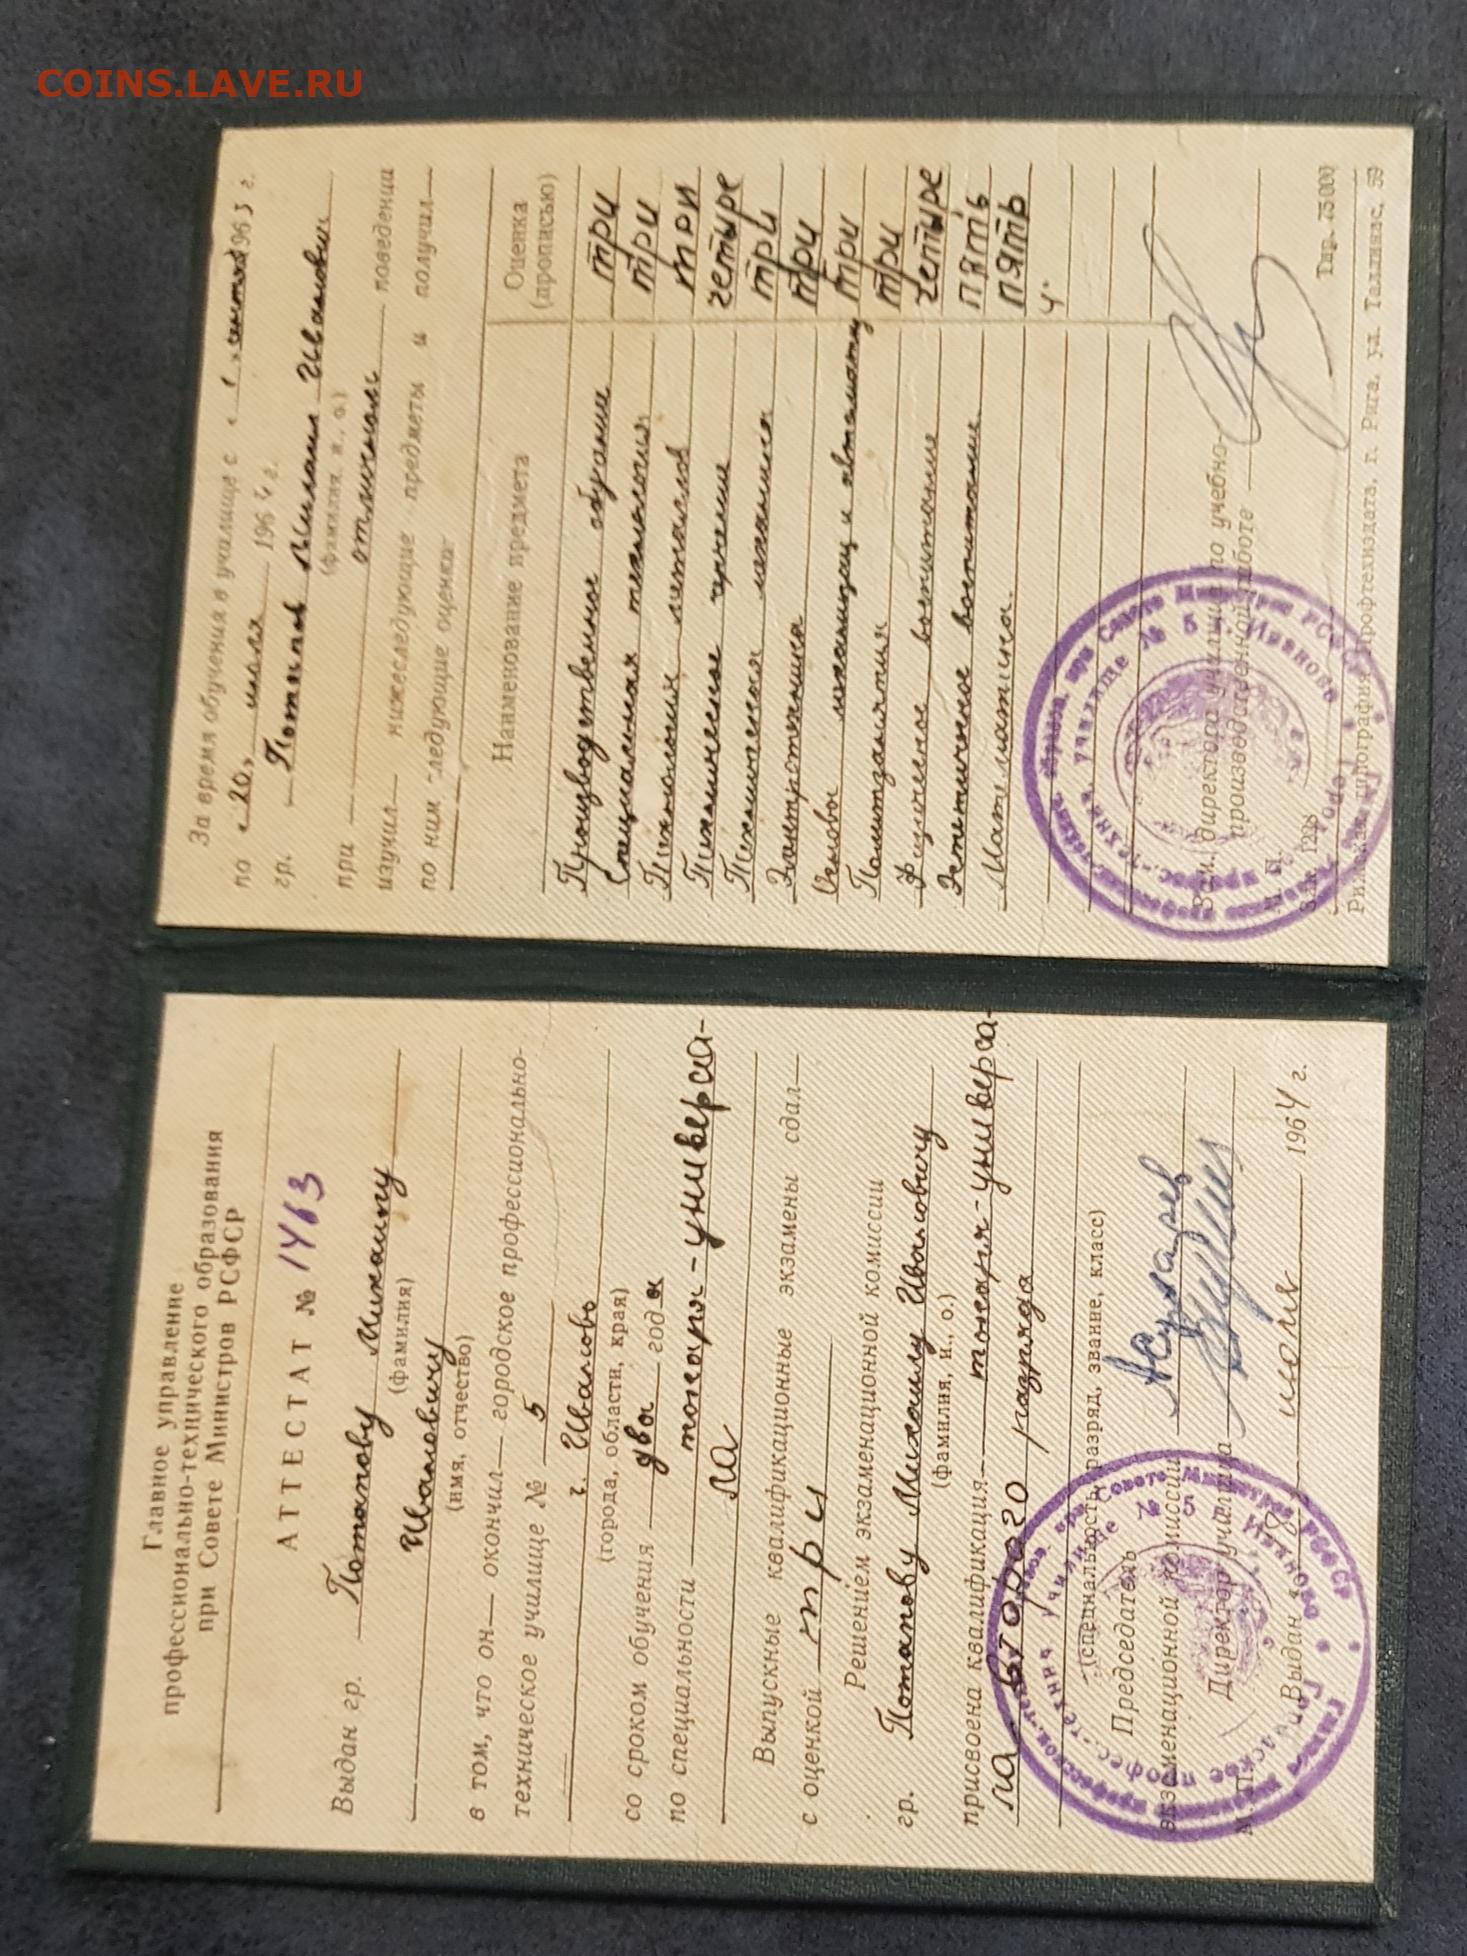 COINS.LAVE.RU
Главное управление
профессионально-технического образования
при Совете Министров РСФСР
АТТЕСТАТ № 1463
Выдан гр. Потапову Михаилу
(фамилия)
Ивановичу
(имя, отчество)
в том, что он— окончил— городское профессионально-
техническое училище № 5
г. Иваново
(города, области, края)
со сроком обучения два года
по специальности токаря-универса-
ла
Выпускные квалификационные экзамены сдал—
с оценкой три
Решением экзаменационной комиссии
гр. Потапову Михаилу Ивановичу
(фамилия, и., о.)
присвоена квалификация токаря-универса-
ла второго разряда
(специальность, разряд, звание, класс)
Председатель
экзаменационной комиссии
Директор училища
Выдан июля 1964 г.
М. П.
За время обучения в училище с «1» 1963 г.
по «20» июля 1964 г.
гр. Потапов Михаил Иванович
(фамилия, и., о.)
при отличном поведении
изучил— нижеследующие предметы и получил—
по ним следующие оценки:
Наименование предмета Оценка
(прописью)
Производственное обучение три
Специальная технология три
Технология металлов три
Техническое черчение четыре
Техническая механика три
Электротехника три
Основы механизац и автоматиз три
Политзанятия три
Физическое воспитание четыре
Эстетичное воспитание пять
Математика. пять
Зам. директора училища по учебно-
производственной работе
М. П.
Зак. 1238 Тир. 75000
Рижская типография Профтехиздата, г. Рига, ул. Таллинас, 59